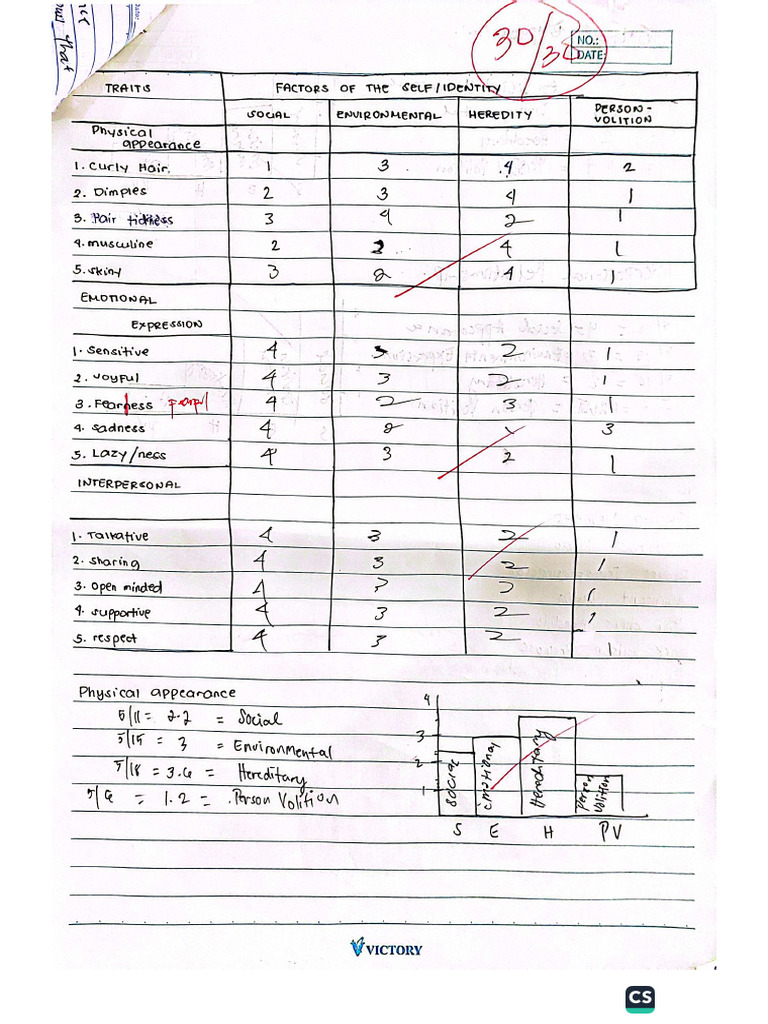 30/30
NO.:
DATE:
TRAITS FACTORS OF THE SELF/IDENTITY
SOCIAL ENVIRONMENTAL HEREDITY PERSON-VOLITION
Physical appearance
1. Curly Hair. 1 3 4 2
2. Dimples 2 3 4 1
3. Hair tickness 3 4 2 1
4. musculine 2 3 4 1
5. skiny 3 2 4 1
EMOTIONAL
EXPRESSION
1. Sensitive 4 3 2 1
2. Joyful 4 3 2 1
3. Fearness 4 2 3 1
4. sadness 4 2 1 3
5. Lazy/ness 4 3 2 1
INTERPERSONAL
1. Talkative 4 3 2 1
2. sharing 4 3 2 1
3. open minded 4 3 2 1
4. supportive 4 3 2 1
5. respect 4 3 2
Physical appearance
5/11 = 2.2 = Social
5/15 = 3 = Environmental
5/18 = 3.6 = Hereditary
5/6 = 1.2 = Person Volition
4
3
2
1
social
emotional
Hereditary
Person Volition
S E H PV
VICTORY
CS